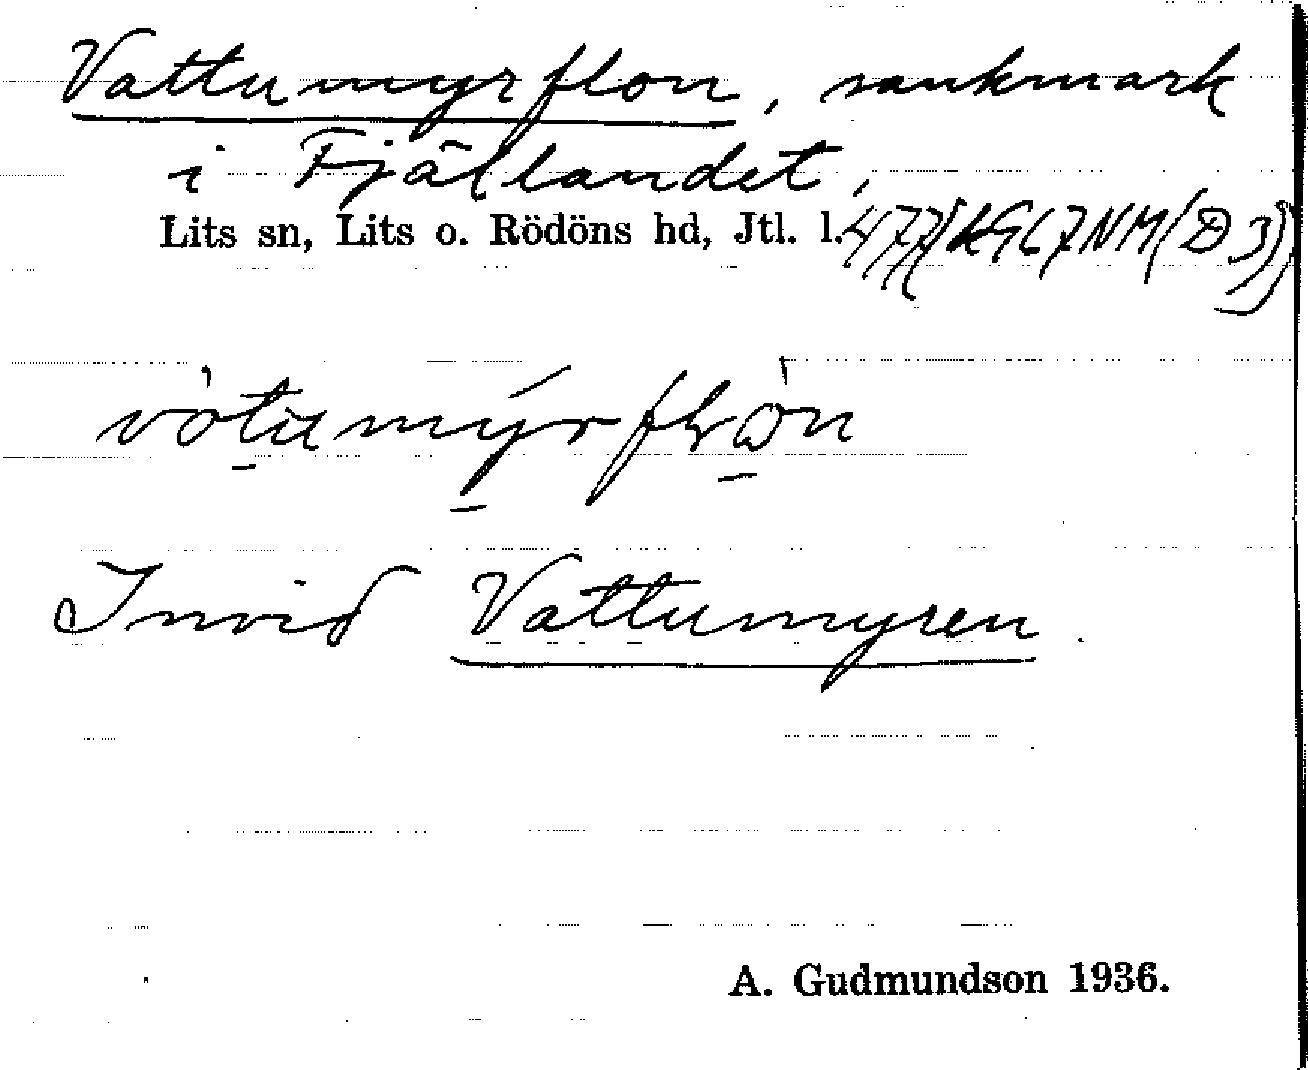 Vattumyrflon, sankmark
i Fjällandet,
Lits sn, Lits o. Rödöns hd, Jtl. l.
Invid Vattumyren.
A. Gudmundson 1936.